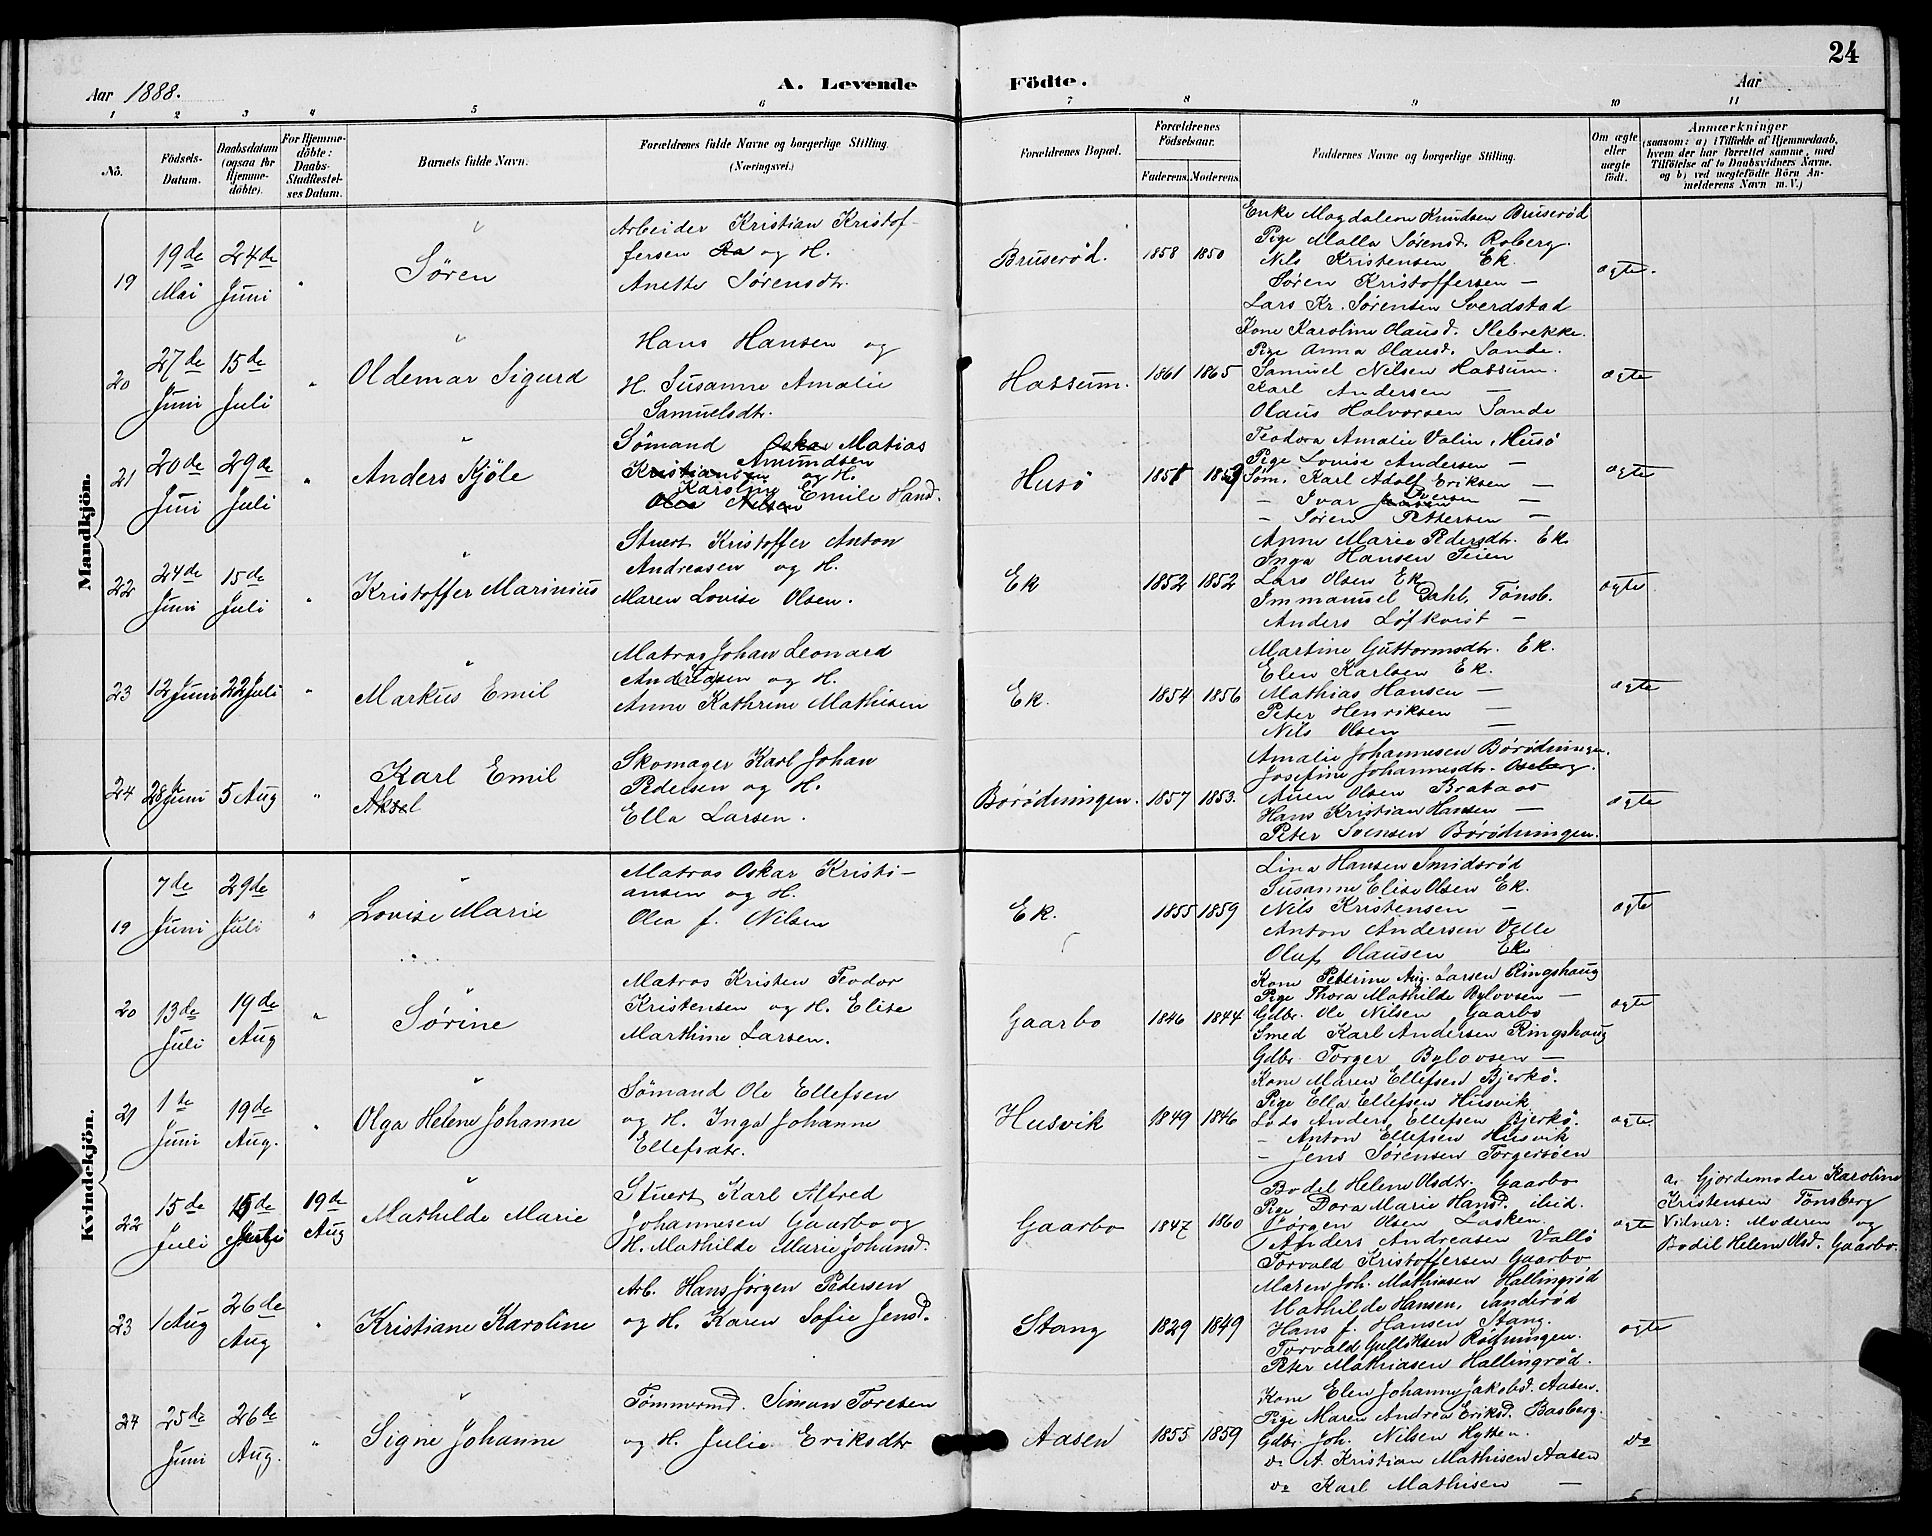 24
Aar 1888. A. Levende Födte. Aar
1 2 3 4 5 6 7 8 9 10 11
No. Födsels-Datum. Daabsdatum (ogsaa for Hjemme-döbte). For Hjemme-döbte: Daabs-Stadfæstel-ses Datum. Barnets fulde Navn. Forældrenes fulde Navne og borgerlige Stilling. (Næringsvei.) Forældrenes Bopæl. Forældrenes Födselsaar. Faderens. Moderens. Faddernes Navne og borgerlige Stilling. Om ægte eller uægte födt. Anmærkninger (saasom: a) i Tilfælde af Hjemmedaab, hvem der har forrettet samme, med Tilföielse af to Daabsvidners Navne, og b) ved uægtefödte Börn An-melderens Navn m. V.)
Mandkjön.
19 19de Mai 24de Juni " Søren
Arbeider Kristian Kristof-
fersen Ra og H.
Anette Sørensdtr.
Bruserød. 1858 1850
Enke Magdalena Knudsen Bruserød
Pige Malla Sørensd. Roberg.
Nils Kristensen Ek.
Søren Kristoffersen —
Lars Kr. Sørensen Sverdstad
ægte.
20 27de Juni 15de Juli " Oldemar Sigurd
Hans Hansen og
H. Susanne Amalie
Samuelsdtr.
Hassum. 1861 1865
Kone Karoline Olausd. Slebrekke.
Pige Anna Olausd. Sande.
Samuel Nilsen Hassum.
Karl Andersen —
Olaus Halvorsen Sande
ægte
21 20de Juni 29de Juli " Anders Kjöle
Sömand Oskar Matias
Amundsen
Kristiansen og H.
Karoline Emilie Hansd.
Olea Nilsen
Husö 1858 1859
Teodora Amalie Valin, Husö
Pige Lovise Andersen —
Söm. Karl Adolf Eriksen —
- Ivar Iversen —
- Sören Pettersen —
ægte
22 24de Juni 15de Juli " Kristoffer Marinius
Stuert Kristoffer Anton
Andreasen og H.
Maren Lovise Olsen.
Ek 1852 1852
Anne Marie Pedersdtr. Ek
Inga Hansen Teien
Lars Olsen Ek
Immanuel Dahl, Tönsb.
Anders Löfkvist —
ægte
23 12 Juni 22 Juli " Markus Emil
Matros Johan Leonard
Andreasen og H.
Anne Kathrine Mathisen
Ek. 1854 1856
Martine Guttormsdtr. Ek.
Elen Karlsen Ek.
Mathias Hansen —
Peter Henriksen —
Nils Olsen —
ægte
24 28de Juni 5 Aug " Karl Emil
Aksel
Skomager Karl Johan
Pedersen og H.
Ella Larsen.
Borödningen. 1857 1853.
Amalie Johannesen Börödningen.
Josefine Johannesdtr. Oseberg.
Auen Olsen Brataas
Hans Kristian Hansen —
Peter Svensen Borödningen.
ægte
Kvindekjön.
19 7de Juni 29de Juli " Lovise Marie
Matros Oskar Kristi-
ansen og H.
Olea f. Nilsen
Ek. 1855 1859
Lina Hansen Smidsröd
Susanne Elise Olsen Ek.
Nils Kristensen —
Anton Andersen Valle
Oluf Olausen Ek
ægte
20 13de Juli 19de Aug " Sörine
Matros Kristen Teodor
Kristensen og H. Elise
Marthine Larsen.
Gaarbo 1846 1844
Kone Petrine Aug. Larsen Ringshaug
Pige Thora Mathilde Bylovsen —
Gdbr. Ole Nilsen Gaarbo
Smed Karl Andersen Ringshaug
Gdbr. Torger Bylovsen —
ægte
21 1te Juni 19de Aug. " Olga Helene Johanne
Sömand Ole Ellefsen
og H. Inga Johanne
Ellefsdtr.
Husvik 1849 1846
Kone Maren Ellefsen Bjerkö.
Pige Ella Ellefsen Husvik
Lods Anders Ellefsen Bjerkö.
- Anton Ellefsen Husvik
- Jens Sörensen Torgersöen
ægte
22 15de Juli 15de Juli 19de Aug Mathilde Marie
Stuert Karl Alfred
Johannesen Gaarbo og
H. Mathilde Marie Johansd.
Gaarbo 1847 1860
Bodil Helene Olsdtr. Gaarbo
Pige Dora Marie Hansd. ibid.
Jörgen Olsen Lasken
Anders Andreasen Vallö
Torvald Kristoffersen Gaarbo
ægte
a. Gjordemoder Karoline
Kristensen Tönsberg
Vidner: Moderen og
Bodil Helene Olsd. Gaarbo.
23 1 Aug 26de Aug " Kristiane Karoline
Arb. Hans Jörgen Pedersen
og H. Karen Sofie Jensd.
Stang 1829 1849
Maren Joh. Mathiasen Hallingröd
Mathilde Hansen, Sanderöd
Hans f. Hansen Stang.
Torvald Gulliksen Rödningen.
Peter Mathiasen Hallingröd.
ægte
24 25de Juni 26de Aug. " Signe Johanne
Tömmermd. Simon Toresen
og H. Julie Eriksdtr
Aasen 1855 1859
Kone Elen Johanne Jakobsd. Aasen.
Pige Maren Andrea Eriksd. Basberg.
Gdbr. Joh. Nilsen Hytten.
do A. Kristian Mathisen Aasen
do Karl Mathisen —
do